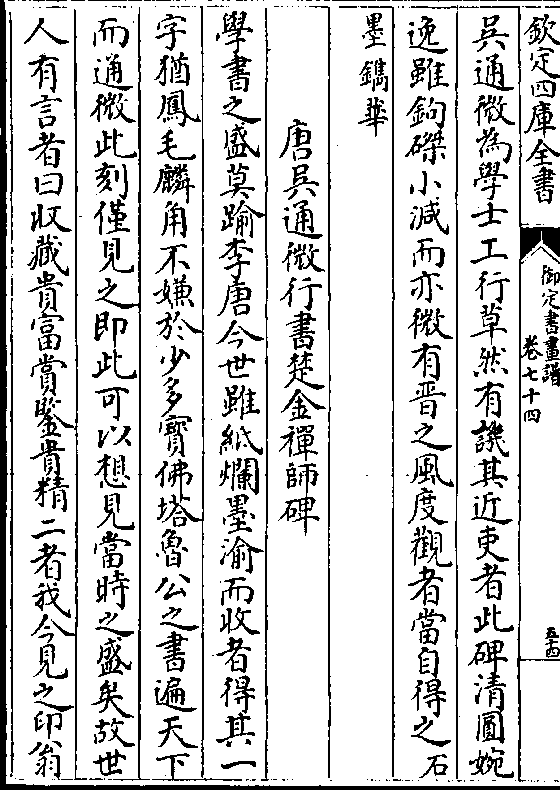 欽定四庫全書
御定書畫譜
卷七十四
五十四
吳通微為學士工行草然有譏其近吏者此碑清圓婉
逸雖鉤磔小減而亦微有晉之風度觀者當自得之石
墨鐫華
唐吳通微行書楚金禪師碑
學書之盛莫踰李唐今世雖紙爛墨渝而收者得其一
字猶鳳毛麟角不嫌於少多寳佛塔魯公之書遍天下
而通微此刻僅見之即此可以想見當時之盛矣故世
人有言者曰收藏貴富賞鑒貴精二者我今見之印翁